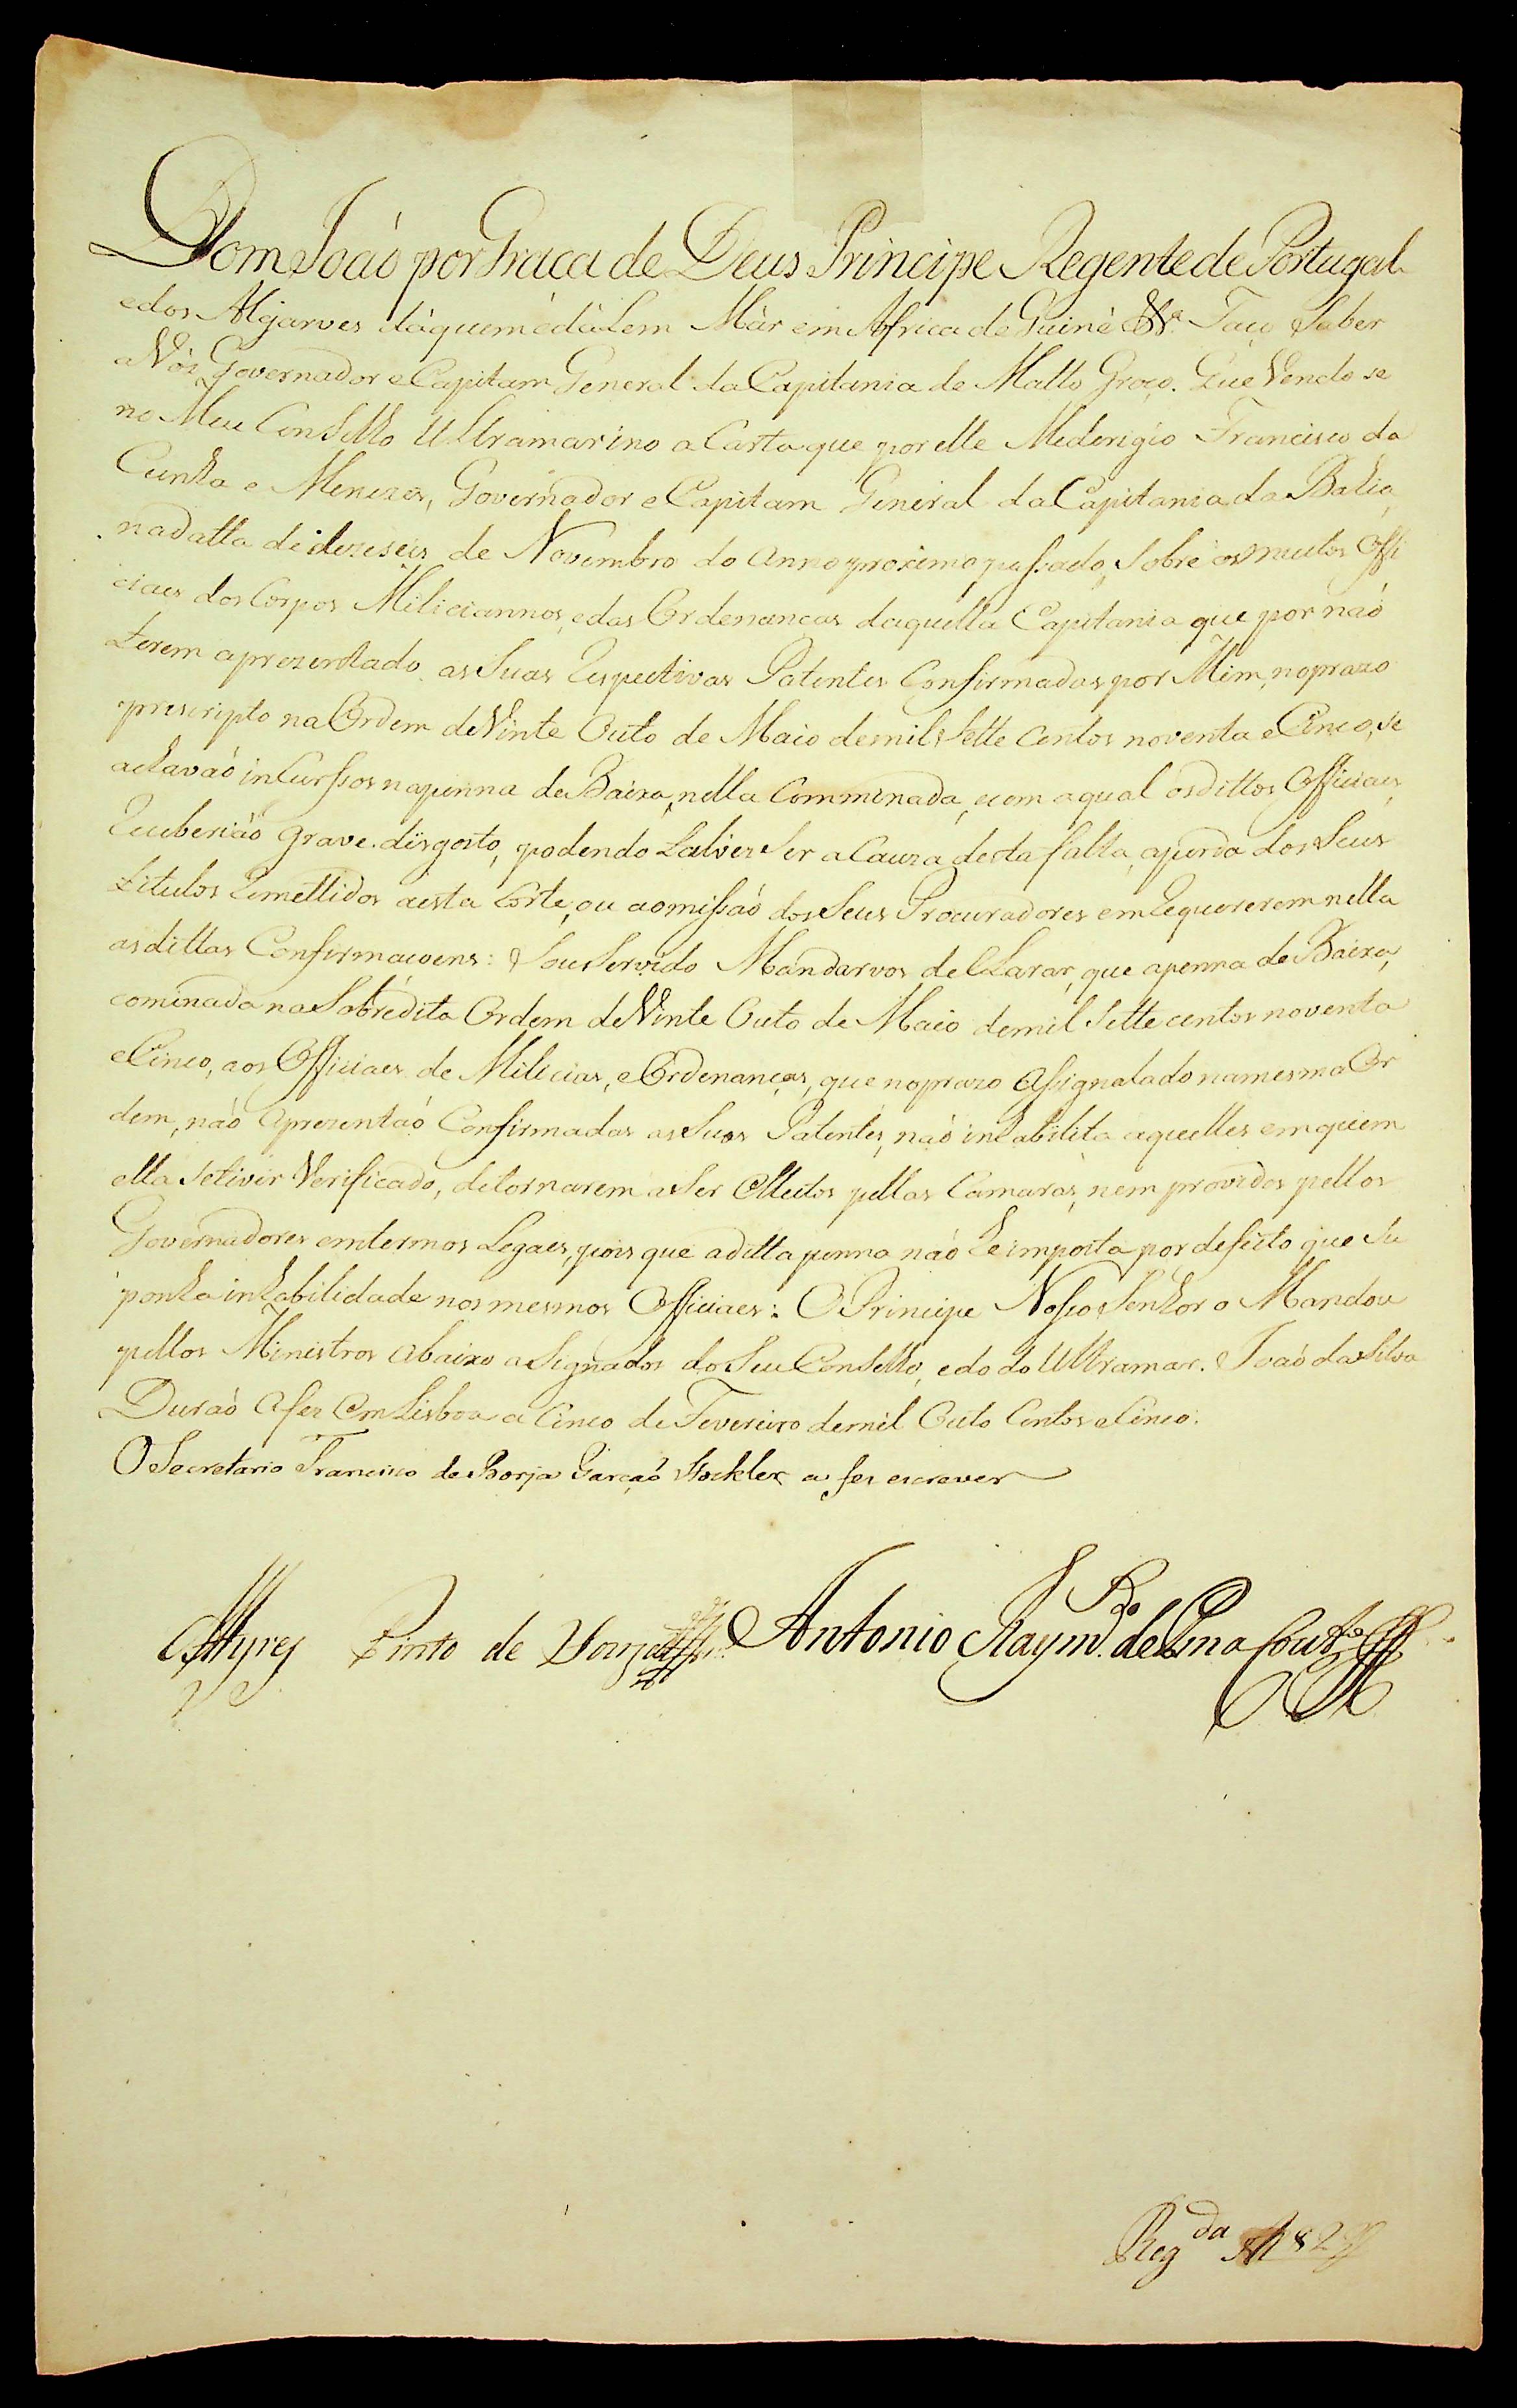 Dom João por Graça de Deus Principe Regente de Portugal
e dos Algarves dáquem e dálem Már em Africa de Guiné &.ª Faço Saber
a Vós Governador e Capitam General da Capitania de Matto Groço. Que Vendo se
no Meu Conselho Ultramarino a Carta que por elle Me derigio Francisco da
Cunha e Menezes, Governador e Capitam General da Capitania da Bahia,
na datta de dezeseis de Novembro do anno proximo passado, Sobre os muitos Offi
ciaes dos Corpos Miliciannos, e das Ordenanças daquella Capitania que por não
terem aprezentado as Suas Respectivas Patentes Confirmadas por Mim, no prazo
prescripto na Ordem de Vinte Outo de Maio de mil Sette Centos noventa e Cinco, se
achavão incurssos na penna de Baixa, nella Comminada, e com a qual os dittos Officiaes,
Receberião grave disgosto, podendo talves Ser a Cauza desta falta, a perda dos Seus
titulos Remettidos a esta Corte, ou a omissão dos Seus Procuradores em Requererem nella
as dittas Confirmaçoens: Sou Servido Mandarvos declarar, que a penna de Baixa,
cominada na Sobredita Ordem de Vinte Outo de Maio de mil Sette centos noventa
e Cinco, aos Officiaes de Milicias, e Ordenanças, que no prazo Assignalado na mesma Or
dem, não Aprezentão Confirmadas as Suas Patentes, não inhabilita aquelles em quem
ella Se tiver Verificado, de tornarem a Ser Elleitos pellas Camaras, nem providos pellos
Governadores em termos Legaes, pois que a ditta penna não he imposta por defeito que Su
ponha inhabilidade nos mesmos Officiaes: O Principe Nosso Senhor o Mandou
pellos Ministros abaixo aSignados do Seu Conselho, e do do Ultramar. João da Silva
Durão a fez em Lisboa a Cinco de Fevereiro de mil Outo Centos e Cinco.
O Secretario Francisco de Borja Garção Stockler a fez escrever
Ayres Pinto de Souza Antonio Raym.do de Pina Cout.º
Reg.da